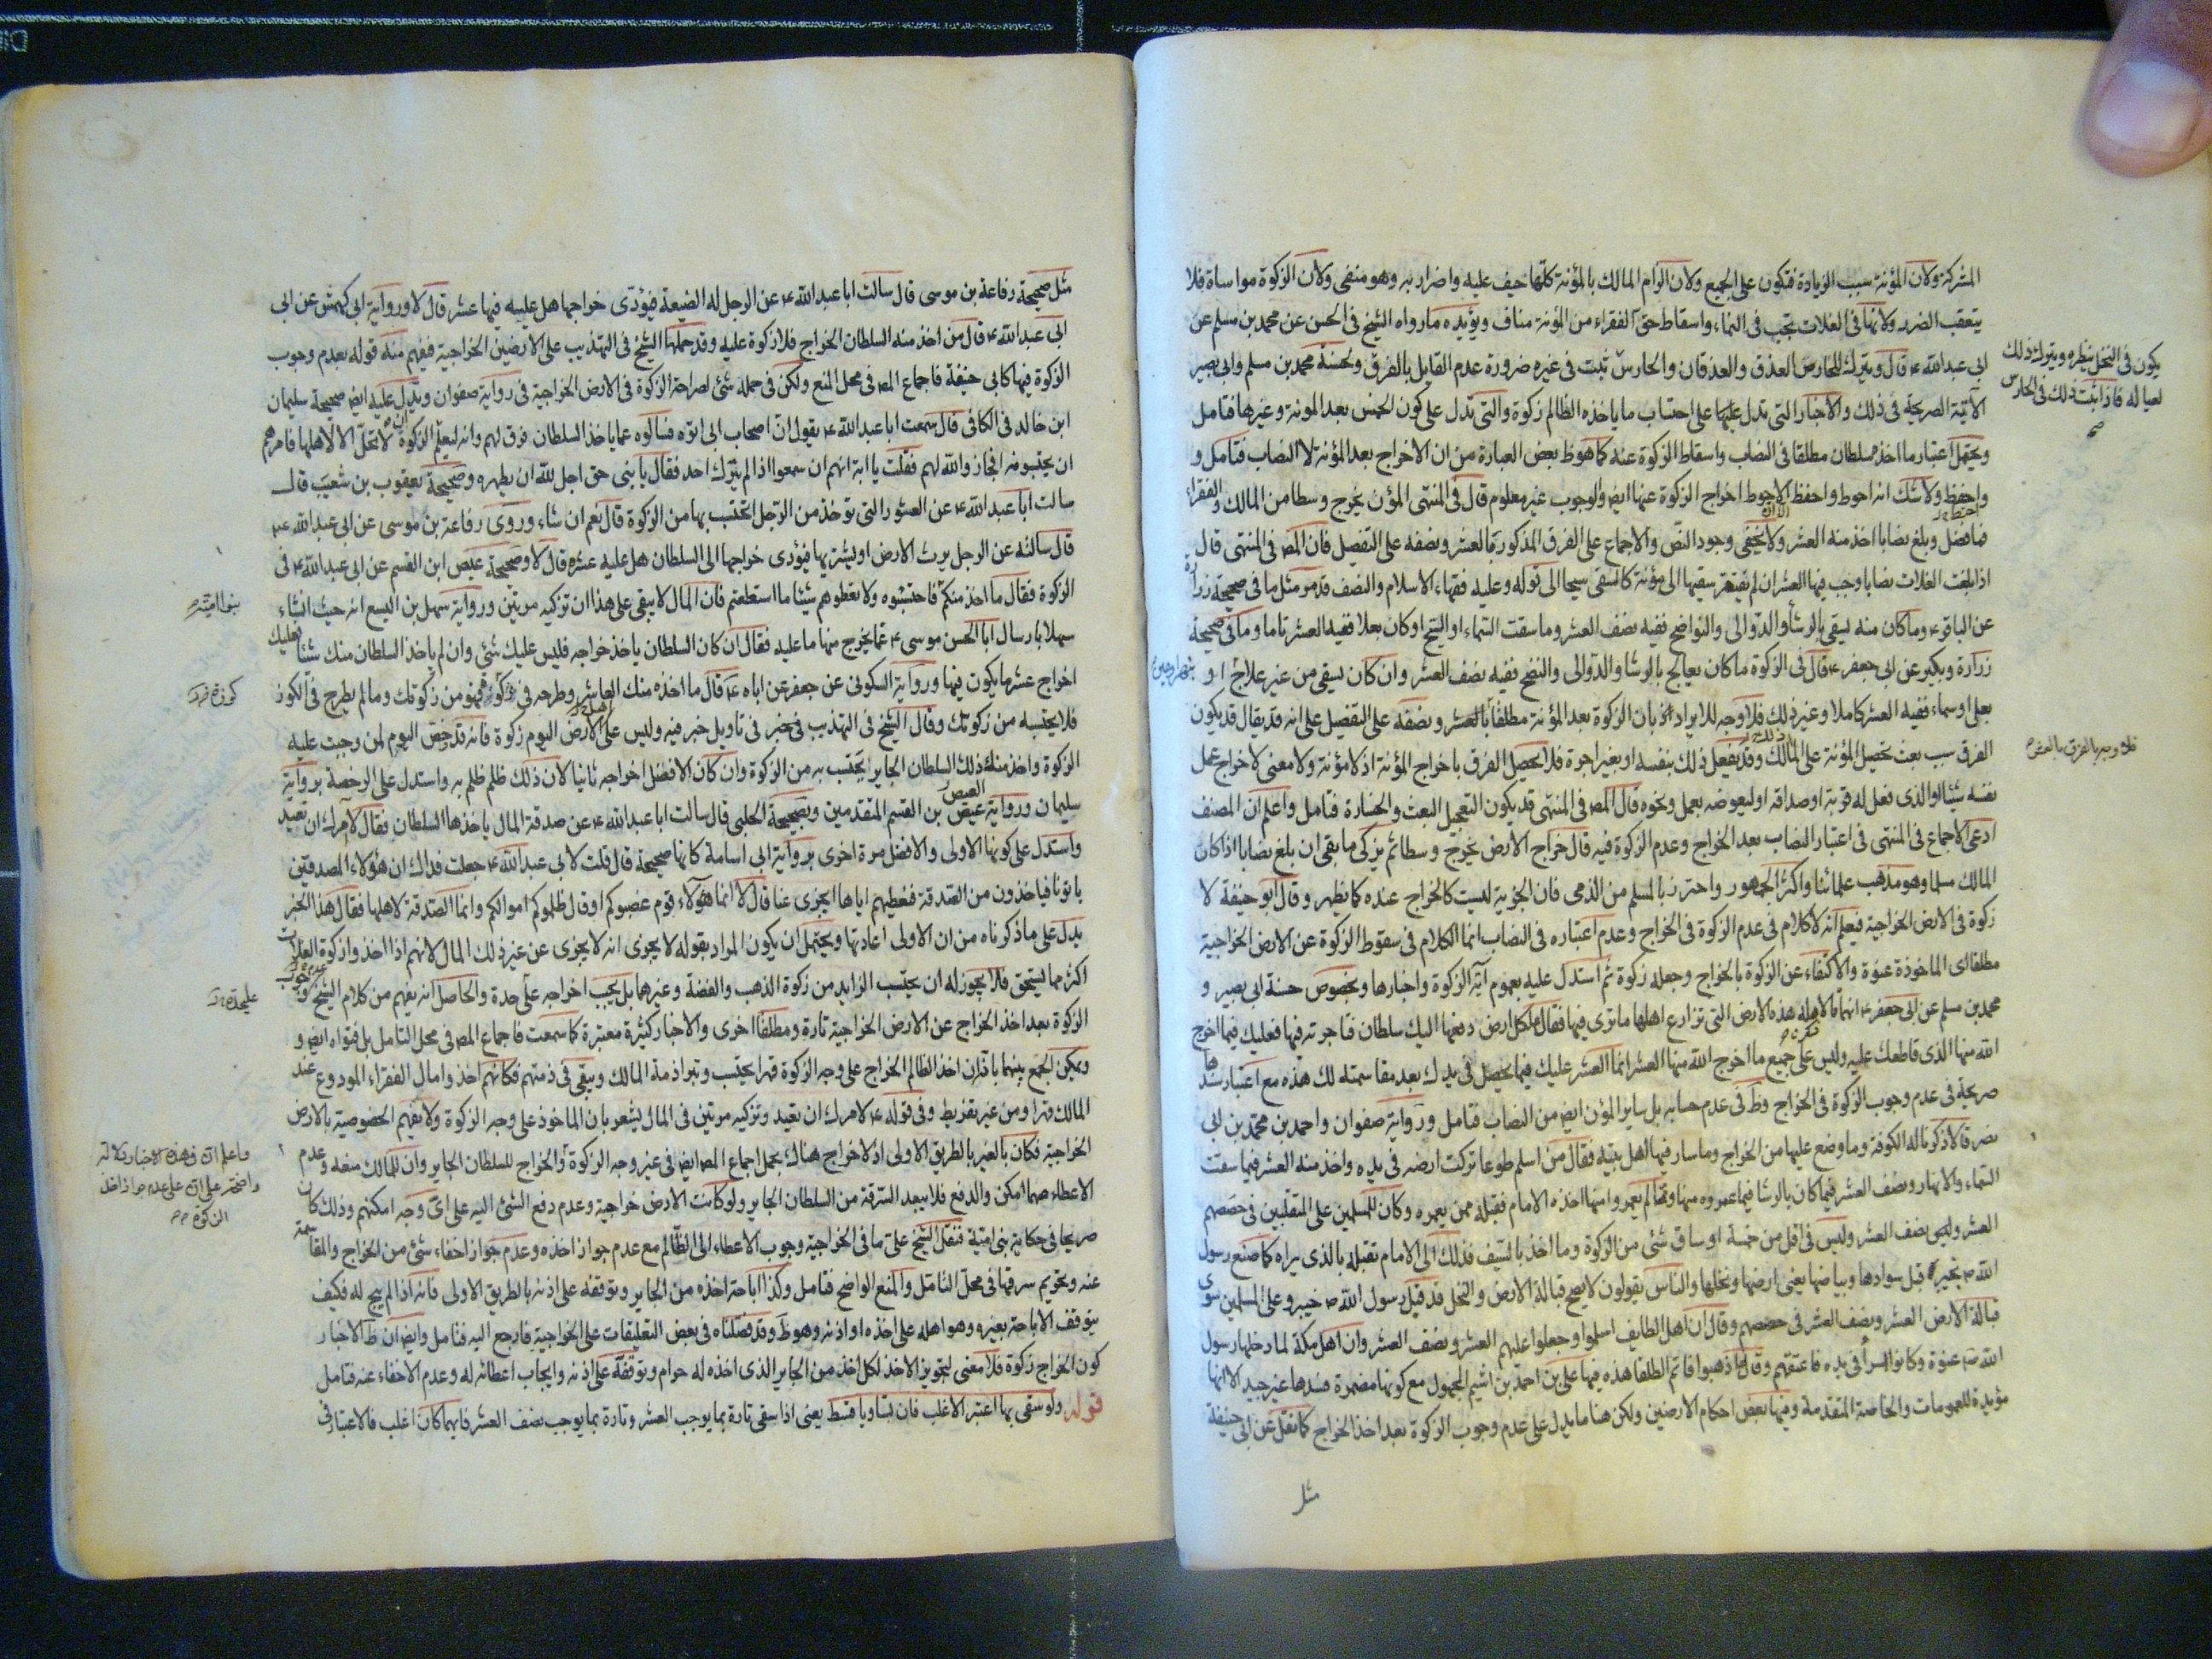 المشركة ولان المؤنة سبب الزيادة فتكون على الجميع ولان الزام المالك بالمؤنة كلها حيف عليه واضرار به وهو منفى ولان الزكوة مواساة فلا
يتعقب الضرر ولانها فى الغلات تجب فى النماء واسقاط حق الفقراء من المؤنة مناف ويؤيده مارواه الشيخ فى الحسن عن محمد بن مسلم عن
ابى عبد الله ع قال ويترك للحارس العذق والعذقان والحارس ثبت فى غيره ضرورة عدم القايل بالفرق ولحسنة محمد بن مسلم وابى بصير
الآتية الصريحة فى ذلك والاخبار التى تدل عليها على احتساب ما ياخذه الظالم زكوة والتى تدل على كون الخمس بعد المونة وغيرها فتامل
ويحتمل اعتبار ما اخذه سلطان مطلقا فى النصاب واسقاط الزكوة عنه كما هو ظ بعض العبارة من ان الاخراج بعد المؤنة لا النصاب فتامل و
واحفظ ولا شك انه احوط واحفظ الاحوط اخراج الزكوة عنها ايض والوجوب غير معلوم قال فى المنتهى المؤن يخرج وسطا من المالك والفقراء
فما فضل وبلغ نصابا اخذ منه العشر ولا يخفى وجود النص والاجماع على الفرق المذكور بالعشر ونصفه على التفصيل فان المص فى المنتهى قال
اذا بلغت الغلات نصابا وجب فيها العشر ان لم يفتقر سقيها الى مؤنة كالسقى سيحا الى قوله وعليه فقهاء الاسلام والنصف قد مر مثل ما فى صحيحة زرارة
عن الباقر ع وما كان منه يسقى بالرشا والدوالى والنواضح ففيه نصف العشر وما سقت السماء او السيح او كان بعلا ففيه العشر تاما وما فى صحيحة
زرارة وبكير عن ابى جعفر ع قال فى الزكوة ما كان يعالج بالرشا والدوالى والنضح ففيه نصف العشر وان كان يسقى من غير علاج او
بعلى او سماء ففيه العشر كاملا وغير ذلك فلا وجه للايراد بان الزكوة بعد المؤنة مطلقا بالعشر ونصفه على التفصيل على انه قد يقال قد يكون
الفرق سبب بعث تحصيل المؤنة على المالك وقد يفعل ذلك بنفسه او بغير اجرة فلا يحصل الفرق باخراج المؤنة اذ لا مؤنة ولا معنى لاخراج عمل
نفسه شيئا والذى فعل له قربة او صداقة او ليعوضه بعمل ونحوه قال المص فى المنتهى قد يكون التعجيل البعث والخسارة فتامل واعلم ان المصنف
ادعى الاجماع فى المنتهى فى اعتبار النصاب بعد الخراج وعدم الزكوة فيه قال خراج الارض يخرج وسطا ثم يزكى ما بقى ان بلغ نصابا اذا كان
المالك مسلما وهو مذهب علمائنا واكثر الجمهور واحترز بالمسلم من الذمى فان الجزية ليست كالخراج عنده كما يظهر وقال ابو حنيفة لا
زكوة فى الارض الخراجية فيعلم انه لا كلام فى عدم الزكوة فى الخراج وعدم اعتباره فى النصاب انما الكلام فى سقوط الزكوة عن الارض الخراجية
مطلقا اى الماخوذة عنوة والاكتفاء عن الزكوة بالخراج وجعله زكوة ثم استدل عليه بعموم آية الزكوة واخبارها وبخصوص حسنة ابى بصير و
محمد بن مسلم عن ابى جعفر ع انهما قالا له هذه الارض التى تزارع اهلها ما ترى فيها فقال كل ارض دفعها اليك سلطان فما حرثه فيها فعليك فيما اخرج
الله منها الذى قاطعك عليه وليس على جميع ما اخرج الله منها العشر انما العشر عليك فيما يحصل فى يدك بعد مقاسمته لك هذه مع اعتبار سندها
صريحة فى عدم وجوب الزكوة فى الخراج وظ فى عدم حسابه بل ساير المؤن ايض من النصاب فتامل ورواية صفوان واحمد بن محمد بن ابى
نصر قالا ذكرنا له الكوفة وما وضع عليها من الخراج وما سار فيها اهل بيته فقال من اسلم طوعا تركت ارضه فى يده واخذ منه العشر فيما سقت
السماء والانهار ونصف العشر فيما كان بالرشا فيما عمروه منها وما لم يعمروا منها اخذه الامام فقبله ممن يعمره وكان للمسلمين على المتقبلين فى حصصهم
العشر وليس نصف العشر وليس فى اقل من خمسة اوساق شئ من الزكوة وما اخذ بالسيف فذلك الى الامام تقبله بالذى يراه كما صنع رسول
الله ص بخيبر قبل سوادها وبياضها يعنى ارضها ونخلها والناس يقولون لا يصح قبالة الارض والنخل قد قبل رسول الله ص خيبر وعلى المسلمين سوى
قبالة الارض العشر ونصف العشر فى حصصهم وقال ان اهل الطايف اسلموا وجعلوا عليهم العشر ونصف العشر وان اهل مكة لما دخلها رسول
الله ص عنوة وكانوا اسرأ فى يده فاعتقهم وقال اذهبوا فانتم الطلقا هذه فيها على بن احمد بن اشيم المجهول مع كونها مضمرة فسندها غير جيد الا انها
مؤيدة للعمومات والخاصة المتقدمة وفيها بعض احكام الارضين ولكن هنا ما يدل على عدم وجوب الزكوة بعد اخذ الخراج كما نقل عن ابى حنيفة
مثل
يكون فى النخل ينظره ويترك ذلك
لعياله فاذا ثبت ذلك فى الحارس
صح
فلا وجه بالفرق بالعشر
مثل صحيحة رفاعة بن موسى قال سالت ابا عبد الله ع عن الرجل له الضيعة فيؤدى خراجها هل عليه فيها عشر قال لا ورواية ابى كهمش عن ابى
ابى عبد الله ع قال من اخذ منه السلطان الخراج فلا زكوة عليه وقد حملها الشيخ فى التهذيب على الارضين الخراجية فيفهم منه قوله بعدم وجوب
الزكوة فيها كابى حنيفة فاجماع المص فى محل المنع ولكن فى حمله شئ لصراحة الزكوة فى الارض الخراجية فى رواية صفوان ويدل عليه ايض صحيحة سليمان
ابن خالد فى الكافى قال سمعت ابا عبد الله ع يقول ان اصحاب ابى اتوه فسالوه عما ياخذ السلطان فرق لهم وانه ليعلم ان الزكوة لا تحل الا لاهلها فامرهم
ان يحتسبوا به فجاز والله لهم فقلت يا ابة انهم ان سمعوا اذا لم يترك احد فقال يا بنى حق احل لله ان يظهره وصحيحة يعقوب بن شعيب قال
سالت ابا عبد الله ع عن العشور التى تؤخذ من الرجل ايحتسب بها من الزكوة قال نعم ان شاء وروى رفاعة بن موسى عن ابى عبد الله ع
قال سالته عن الرجل يرث الارض او يشتريها فيؤدى خراجها الى السلطان هل عليه عشر قال لا وصحيحة عيص ابن القسم عن ابى عبد الله ع فى
الزكوة فقال ما اخذ منكم فاحتسبوه ولا تعطوهم شيئا ما استطعتم فان المال لا يبقى على هذا ان تزكيه مرتين ورواية سهل بن اليسع انه حيث انشاء
سهلاباد سال ابا الحسن موسى ع عما يخرج منها ما عليه فقال ان كان السلطان ياخذ خراجه فليس عليك شئ وان لم ياخذ السلطان منك شيئا فعليك
اخراج عشر ما يكون فيها ورواية السكونى عن جعفر عن اباه ع قال ما اخذه منك العاشر وطرحه فى كوزه فهو من زكوتك وما لم يطرح فى الكوز
فلا تحتسبه من زكوتك وقال الشيخ فى التهذيب فى خبر فى تاويل خبر فيه وليس على اهل الارض اليوم زكوة فانه قد رخص اليوم لمن وجبت عليه
الزكوة واخذ منه ذلك السلطان الجاير ان يحتسب به من الزكوة وان كان الافضل اخراجه ثانيا لان ذلك ظلم ظلم به واستدل على الرخصة برواية
سليمان ورواية عيص بن القسم المتقدمين وبصحيحة الحلبى قال سالت ابا عبد الله ع عن صدقة المال ياخذها السلطان فقال لا آمرك ان تعيد
واستدل على كونها الاولى والافضل مرة اخرى برواية ابى اسامة كانها صحيحة قال قلت لابى عبد الله ع جعلت فداك ان هؤلاء المصدقين
ياتونا فياخذون من الصدقة فنعطيهم اياها ايجزى عنا قال لا انما هؤلاء قوم غصبوكم او قال ظلموكم اموالكم وانما الصدقة لاهلها فقال هذا الخبر
يدل على ما ذكرناه من ان الاولى اعادتها ويحتمل ان يكون المراد بقوله لا يجزى انه لا يجزى عن غير ذلك المال لانهم اذا اخذوا زكوة الغلات
اكثر مما يستحق فلا يجوز له ان يحتسب الزايد من زكوة الذهب والفضة وغيرهما بل يجب اخراجه على حدة والحاصل انه يفهم من كلام الشيخ عدم وجوب
الزكوة بعد اخذ الخراج عن الارض الخراجية تارة ومطلقا اخرى والاخبار كثيرة معتبرة كما سمعت فاجماع المص فى محل التامل بل فتواه ايض و
ويمكن الجمع بينهما بانه ان اخذ الظالم الخراج على وجه الزكوة قهرا يحتسب وتبرا ذمة المالك ويبقى فى ذمتهم فكانهم اخذوا مال الفقراء المودوع عند
المالك قهرا ومن غير تفريط وفى قوله ع لامرك ان تعيد وتزكيه مرتين فى المال يشعر بان الماخوذ على وجه الزكوة ولا يفهم الخصوصية بالارض
الخراجية فكان بالغير بالطريق الاولى اذ لا خراج هناك بحمل اجماع المص ايض فى غير وجه الزكوة والخراج للسلطان الجاير وان للمالك منعه وعدم
الاعطاء مهما امكن والدفع فلا يبعد السرقة من السلطان الجاير ولو كانت الارض خراجية وعدم دفع الشئ اليه على اى وجه امكنهم وذلك كان
صريحا فى حكاية بنى امية فنقل الشيخ على ما فى الخراجية وجوب الاعطاء الى الظالم مع عدم جواز اخذه وعدم جواز اخفاء شئ من الخراج والمقاسمة
عنه وتحريم سرقتها فى محل التامل والمنع الواضح فتامل وكذا اباحة اخذه من الجاير وتوقفه على اذنه بالطريق الاولى فانه اذا لم يبح له فكيف
يتوقف الاباحة بغيره وهو اهله على اخذه او اذنه وهو ظ وقد فصلناه فى بعض التعليقات على الخراجية فارجع اليه فتامل وايض ان ظ الاخبار
كون الخراج زكوة فلا معنى لتجويز الاخذ لكل اخذ من الجاير الذى اخذه له حرام وتوقفه على اذنه وايجاب اعطائه له وعدم الاخفاء عنه فتامل
قوله ولو سقى بهما اعتبر الاغلب فان تساويا قسط يعنى اذا سقى تارة بما يوجب العشر وتارة بما يوجب نصف العشر فايهما كان اغلب فالاعتبار فى
بنو امية
كوزه
عليحدة
واعلم ان فى هذه الاخبار دلالة